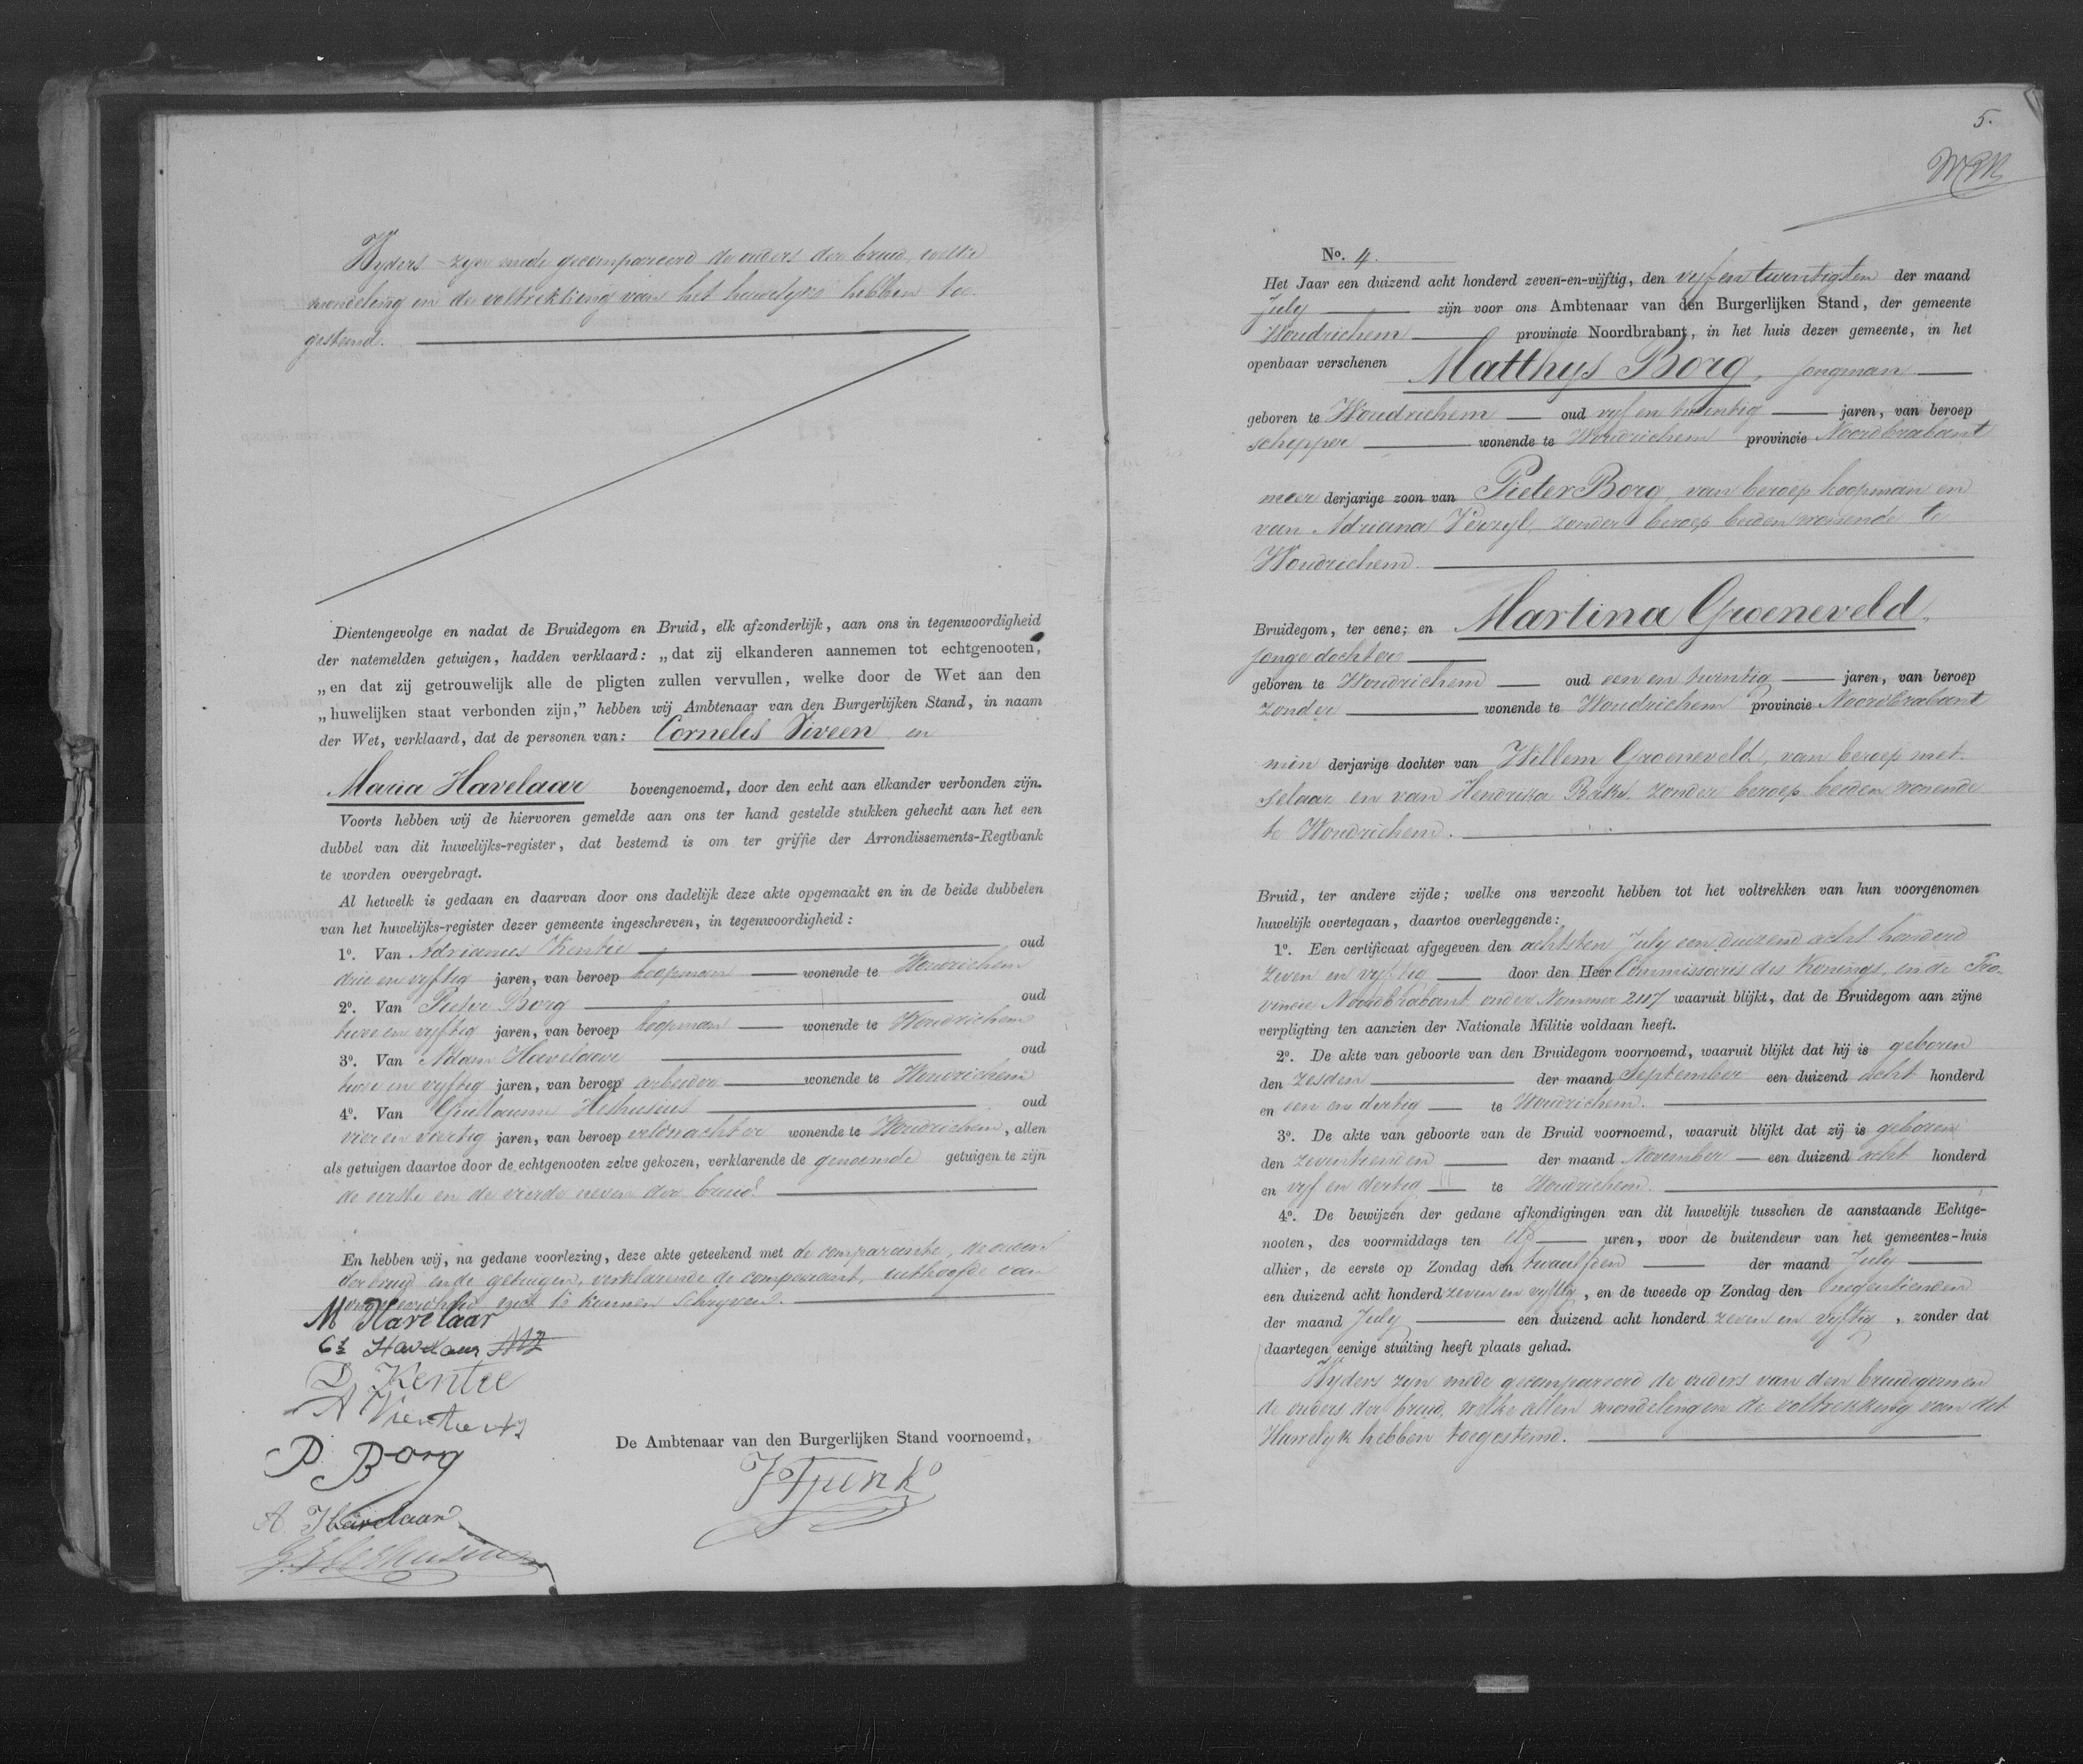 Wyders zyn mede gecompareerd de ouders der bruid, welke
mondeling in de voltrekking van het huwelyk hebben toe
gestemd.
Dientengevolge en nadat de Bruidegom en Bruid, elk afzonderlijk, aan ons in tegenwoordigheid
der natemelden getuigen, hadden verklaard: „dat zij elkanderen aannemen tot echtgenooten,
„en dat zij getrouwelijk alle de pligten zullen vervullen, welke door de Wet aan den
„huwelijken staat verbonden zijn,” hebben wij Ambtenaar van den Burgerlijken Stand, in naam
der Wet, verklaard, dat de personen van: Cornelis Viveen en
Maria Havelaar bovengenoemd, door den echt aan elkander verbonden zijn.
Voorts hebben wij de hiervoren gemelde aan ons ter hand gestelde stukken gehecht aan het een
dubbel van dit huwelijks-register, dat bestemd is om ter griffie der Arrondissements-Regtbank
te worden overgebragt.
Al hetwelk is gedaan en daarvan door ons dadelijk deze akte opgemaakt en in de beide dubbelen
van het huwelijks-register dezer gemeente ingeschreven, in tegenwoordigheid:
1o. Van Adrianus Kentie oud
drie en vyftig jaren, van beroep koopman wonende te Woudrichem
2o. Van Pieter Borg oud
twee en vyftig jaren, van beroep koopman wonende te Woudrichem
3o. Van Adam Havelaar oud
twee en vyftig jaren, van beroep arbeider wonende te Woudrichem
4o. Van Guillaume Heshusius oud
vier en veertig jaren, van beroep veldwachter wonende te Woudrichem, allen
als getuigen daartoe door de echtgenooten zelve gekozen, verklarende de genoemde getuigen te zijn
de eerste en de vierde neven der bruid.
En hebben wij, na gedane voorlezing, deze akte geteekend met de comparante, de ouders
der bruid en de getuigen, verklarende de comparant, uithoofde van
onervarenheid niet te kunnen schryven.
M Havelaar
Havelaar
D Kentie
A
P. Borg
A. Havelaar
G. Heshusius
De Ambtenaar van den Burgerlijken Stand voornoemd,
5.
No. 4.
Het Jaar een duizend acht honderd zeven-en-vijftig, den vyf en twintigsten der maand
July zijn voor ons Ambtenaar van den Burgerlijken Stand, der gemeente
Woudrichem provincie Noordbrabant, in het huis dezer gemeente, in het
openbaar verschenen Matthys Borg, jongman
geboren te Woudrichem oud vyf en twintig jaren, van beroep
schipper wonende te Woudrichem provincie Noordbrabant
meer derjarige zoon van Pieter Borg, van beroep koopman en
van Adriana Verzyl, zonder beroep beiden wonende te
Woudrichem.
Bruidegom, ter eene; en Martina Groeneveld,
jonge dochter
geboren te Woudrichem oud een en twintig jaren, van beroep
zonder wonende te Woudrichem provincie Noordbrabant
min derjarige dochter van Willem Groeneveld, van beroep met-
selaar en van Hendrika Bakx zonder beroep beiden wonende
te Woudrichem.
Bruid, ter andere zijde; welke ons verzocht hebben tot het voltrekken van hun voorgenomen
huwelijk overtegaan, daartoe overleggende:
1o. Een certificaat afgegeven den achtsten July een duizend acht honderd
zeven en vyftig door den Heer Commissaris des Konings, in de Pro-
vincie Noordbrabant onder Nommer 2117 waaruit blijkt, dat de Bruidegom aan zijne
verpligting ten aanzien der Nationale Militie voldaan heeft.
2o. De akte van geboorte van den Bruidegom voornoemd, waaruit blijkt dat hij is geboren
den zesden der maand September een duizend acht honderd
en een en dertig te Woudrichem.
3o. De akte van geboorte van de Bruid voornoemd, waaruit blijkt dat zij is geboren
den zeventienden der maand November een duizend acht honderd
en vyf en dertig te Woudrichem.
4o. De bewijzen der gedane afkondigingen van dit huwelijk tusschen de aanstaande Echtge-
nooten, des voormiddags ten elf uren, voor de buitendeur van het gemeentes-huis
alhier, de eerste op Zondag den twaalfden der maand July
een duizend acht honderd zeven en vyftig, en de tweede op Zondag den negentienden
der maand July een duizend acht honderd zeven en vyftig, zonder dat
daartegen eenige stuiting heeft plaats gehad.
Wyders zyn mede gecompareerd de ouders van den bruidegom en
de ouders der bruid, welke allen mondeling in de voltrekking van dit
Huwelyk hebben toegestemd.